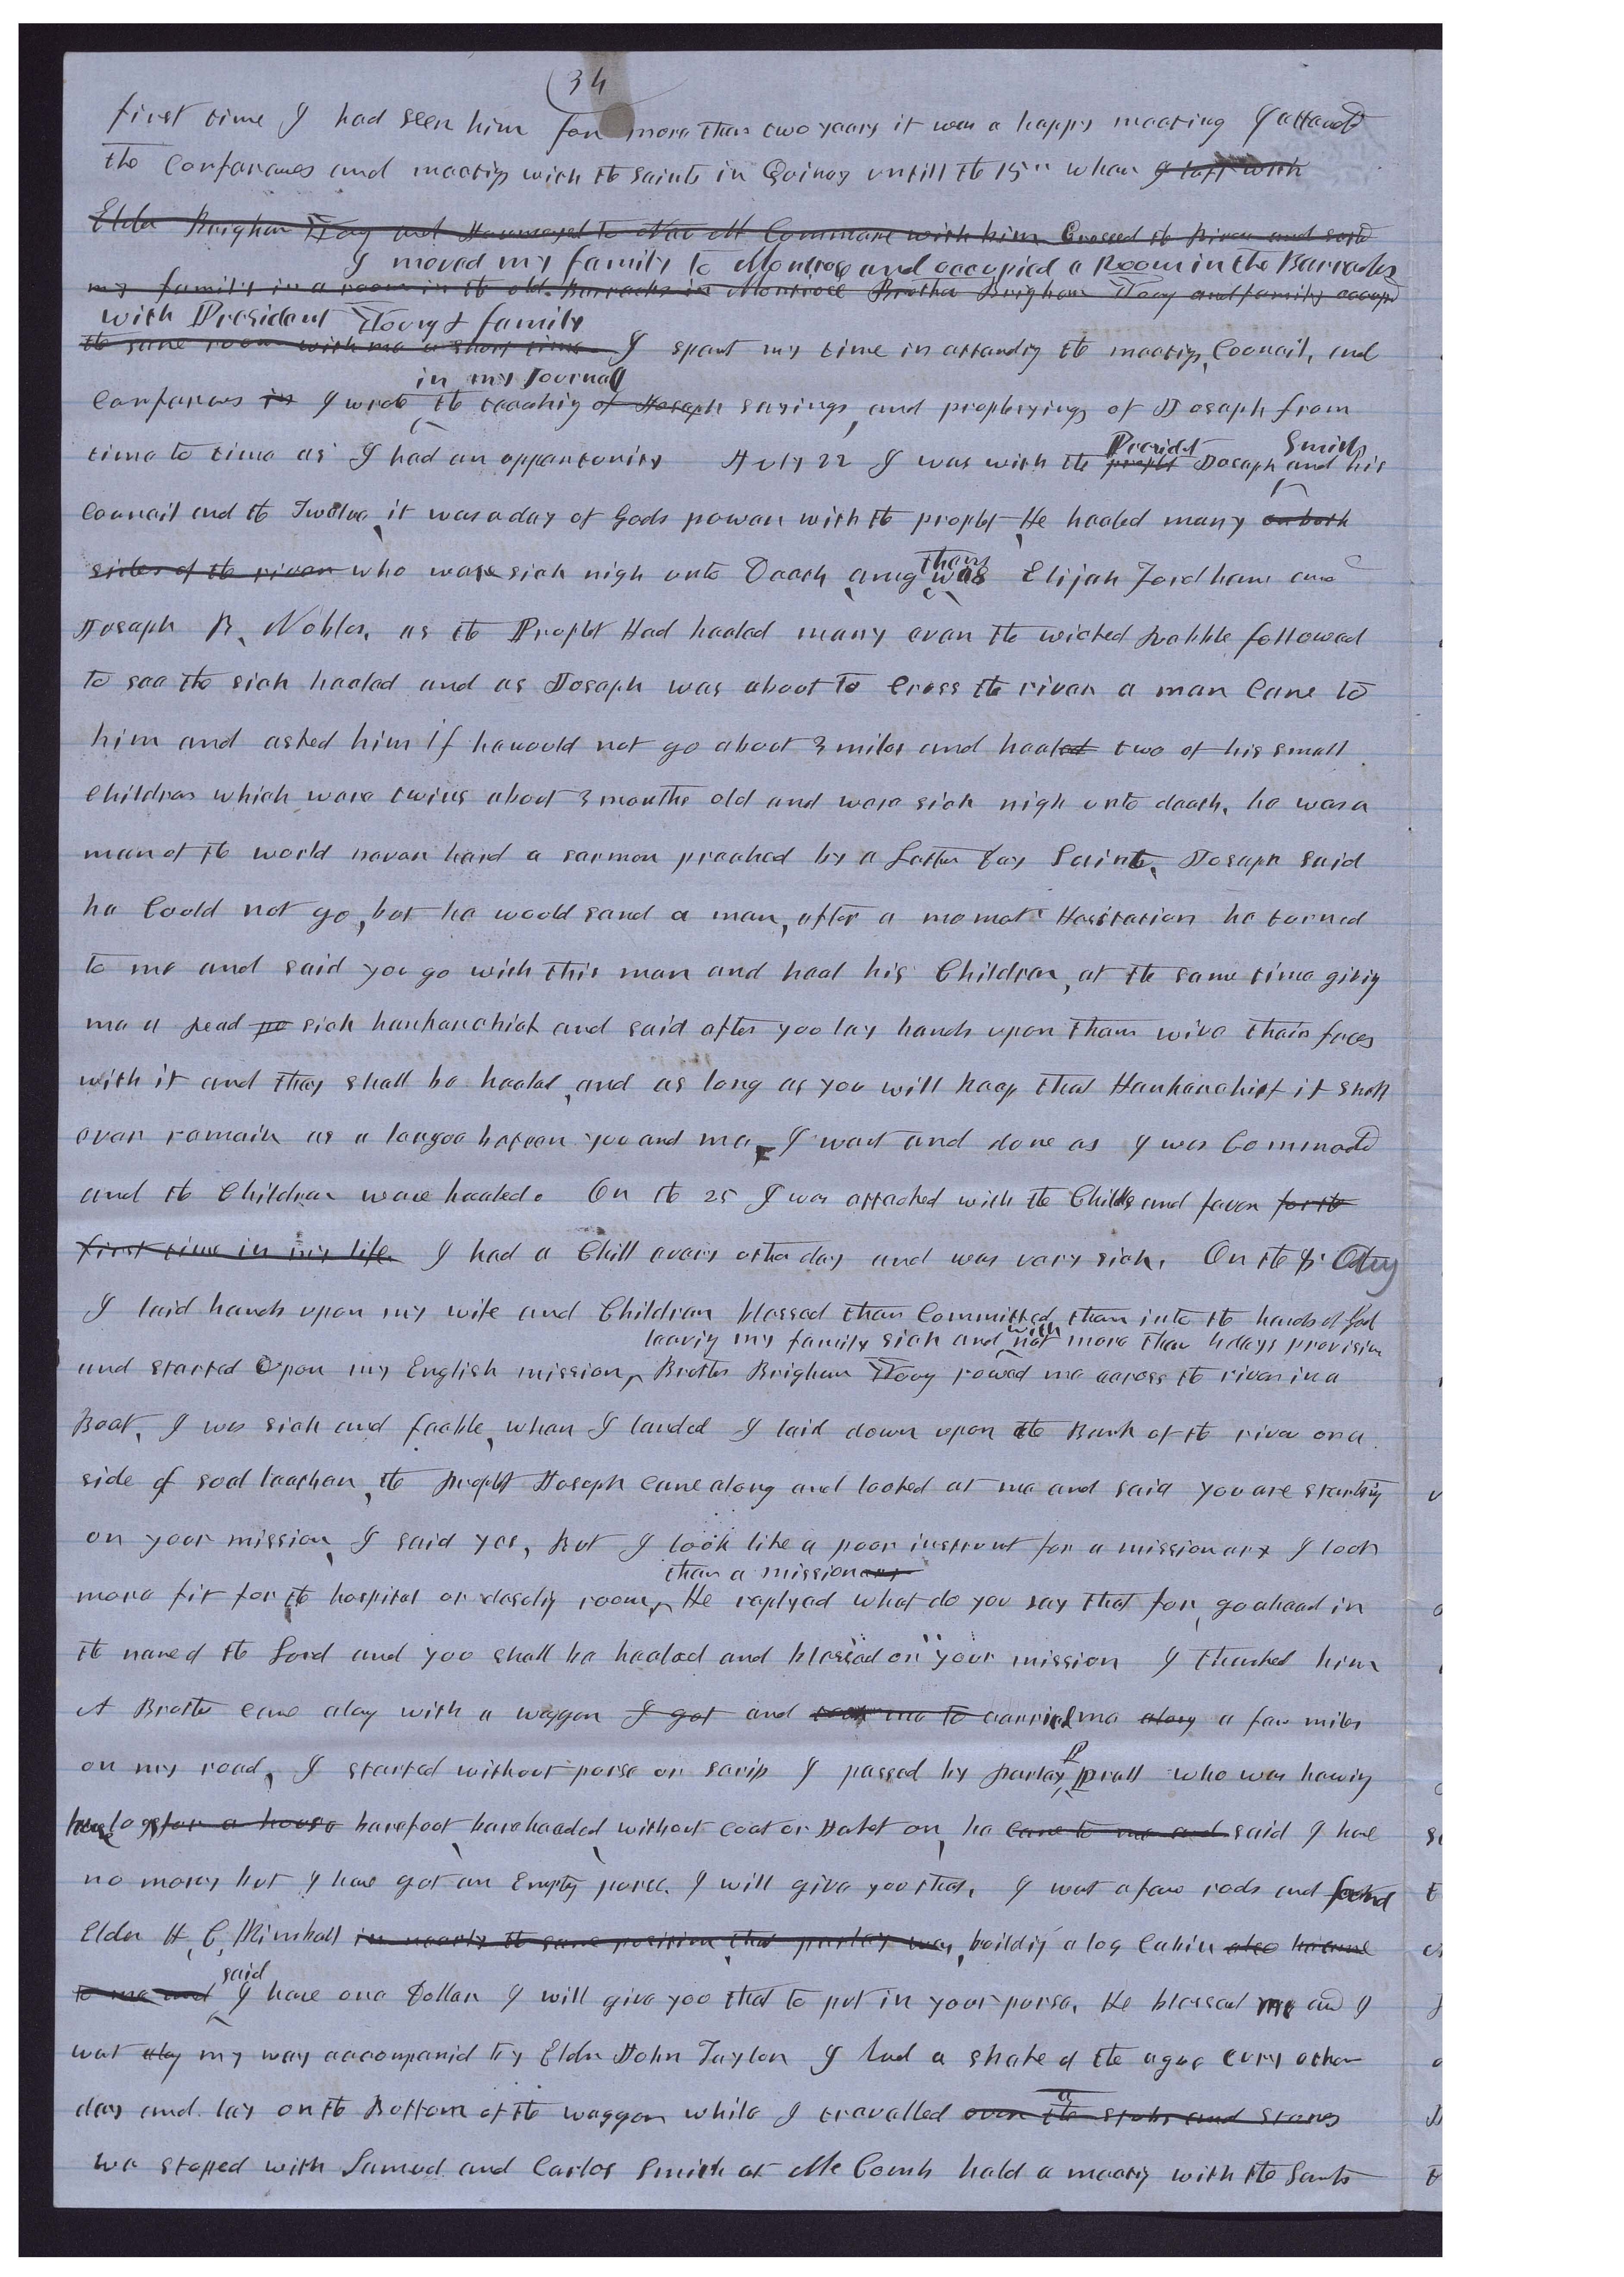 (34
first time I had seen him for more than two years it was a happy meeting I attend
the Conferences and meeting with the saints in Quincy untill the 15" when I left with
Elder Brigham Young and Journeyed to Nauvoo Commerce with him Crossed the River and settd
I moved my family to Montrose and occupied a Room in the Barracks
my family in a room in the old Barracks in Montrose Brother Brigham Young and family occupd
with President Young & family
the same room with me a short time I spent my time in attending the meeting, Council, and
in my Journal
Conferences I wrote the teaching of Joseph sayings, and prophesyings of Joseph from
time to time as I had an oppertunity July 22 I was with the prophet Joseph and his
Presidet Smith
Council and the Twelve, it was a day of Gods power with the prophet He healed many on both
them
sides of the river who ware sick nigh unto Death, amg was Elijah Fordham and
Joseph B. Nobles, as the Prophet Had healed many even the wicked Rabble followed
to see the sick healed and as Joseph was about to Cross the river a man Came to
him and asked him if he would not go about 3 miles and healed two of his small
Children which were twins about 3 months old and were sick nigh unto death, he was a
man of the world never heard a sermon preached by a Latter Day Saint, Joseph said
he Could not go, but he would send a man, after a momet Hesitation he turned
to me and said you go with this man and heal his Children, at the same time givig
me a Read po sick hankerchief and said after you lay hands upon them wive their faces
with it and they shall be healed, and as long as you will keep that Hankerchief it shall
ever remain as a leagoe between you and me, I went and done as I was Commaded
and the Children ware healed. On the 25 I was attacked with the Chills and fever for the
first time in my life I had a Chill every other day and was very sick. On the 8 day
I laid hands upon my wife and Children blessed them Committed them into the hands of God
leavig my family sick and with not more than 4 days provision
and started Upon my English mission, Brother Brigham Young rowed me across the river in a
Boat, I was sick and feeble, when I landed I laid down upon the Bank of the river on a
side of soal leather, the prophet Joseph Came along and looked at me and said you are starting
on your mission, I said yes, But I look like a poor instrumt for a missionary I look
than a missionary
more fit for the hospital or desectig room, He replyed what do you say that for, go ahead in
the name of the Lord and you shall be healed and blessed on your mission I thanked him
A Brother Came alog with a waggon I got and took me to carried me along a few miles
on my road, I started without purse or scrip I passed by Parley P Pratt who was hewig
logs for a house barefoot, bareheaded, without Coat or Jaket on, he Came to me and said I have
no money but I have got an Empty purse. I will give you that, I went a few rods and found
Elder H, C, Kimball in nearly the same position that parley was, buildig a log Cabin also he came
said
to me and I have one Dollar I will give you that to put in your purse, He blessed me and I
went alog my way accompanid by Elder John Taylor I had a shake of the ague every other
a
day and lay on the Bottom of the waggon while I travelled over the stubs and stones
we stoped with Samuel and Carlos Smith at McComb held a meetig with the Saints